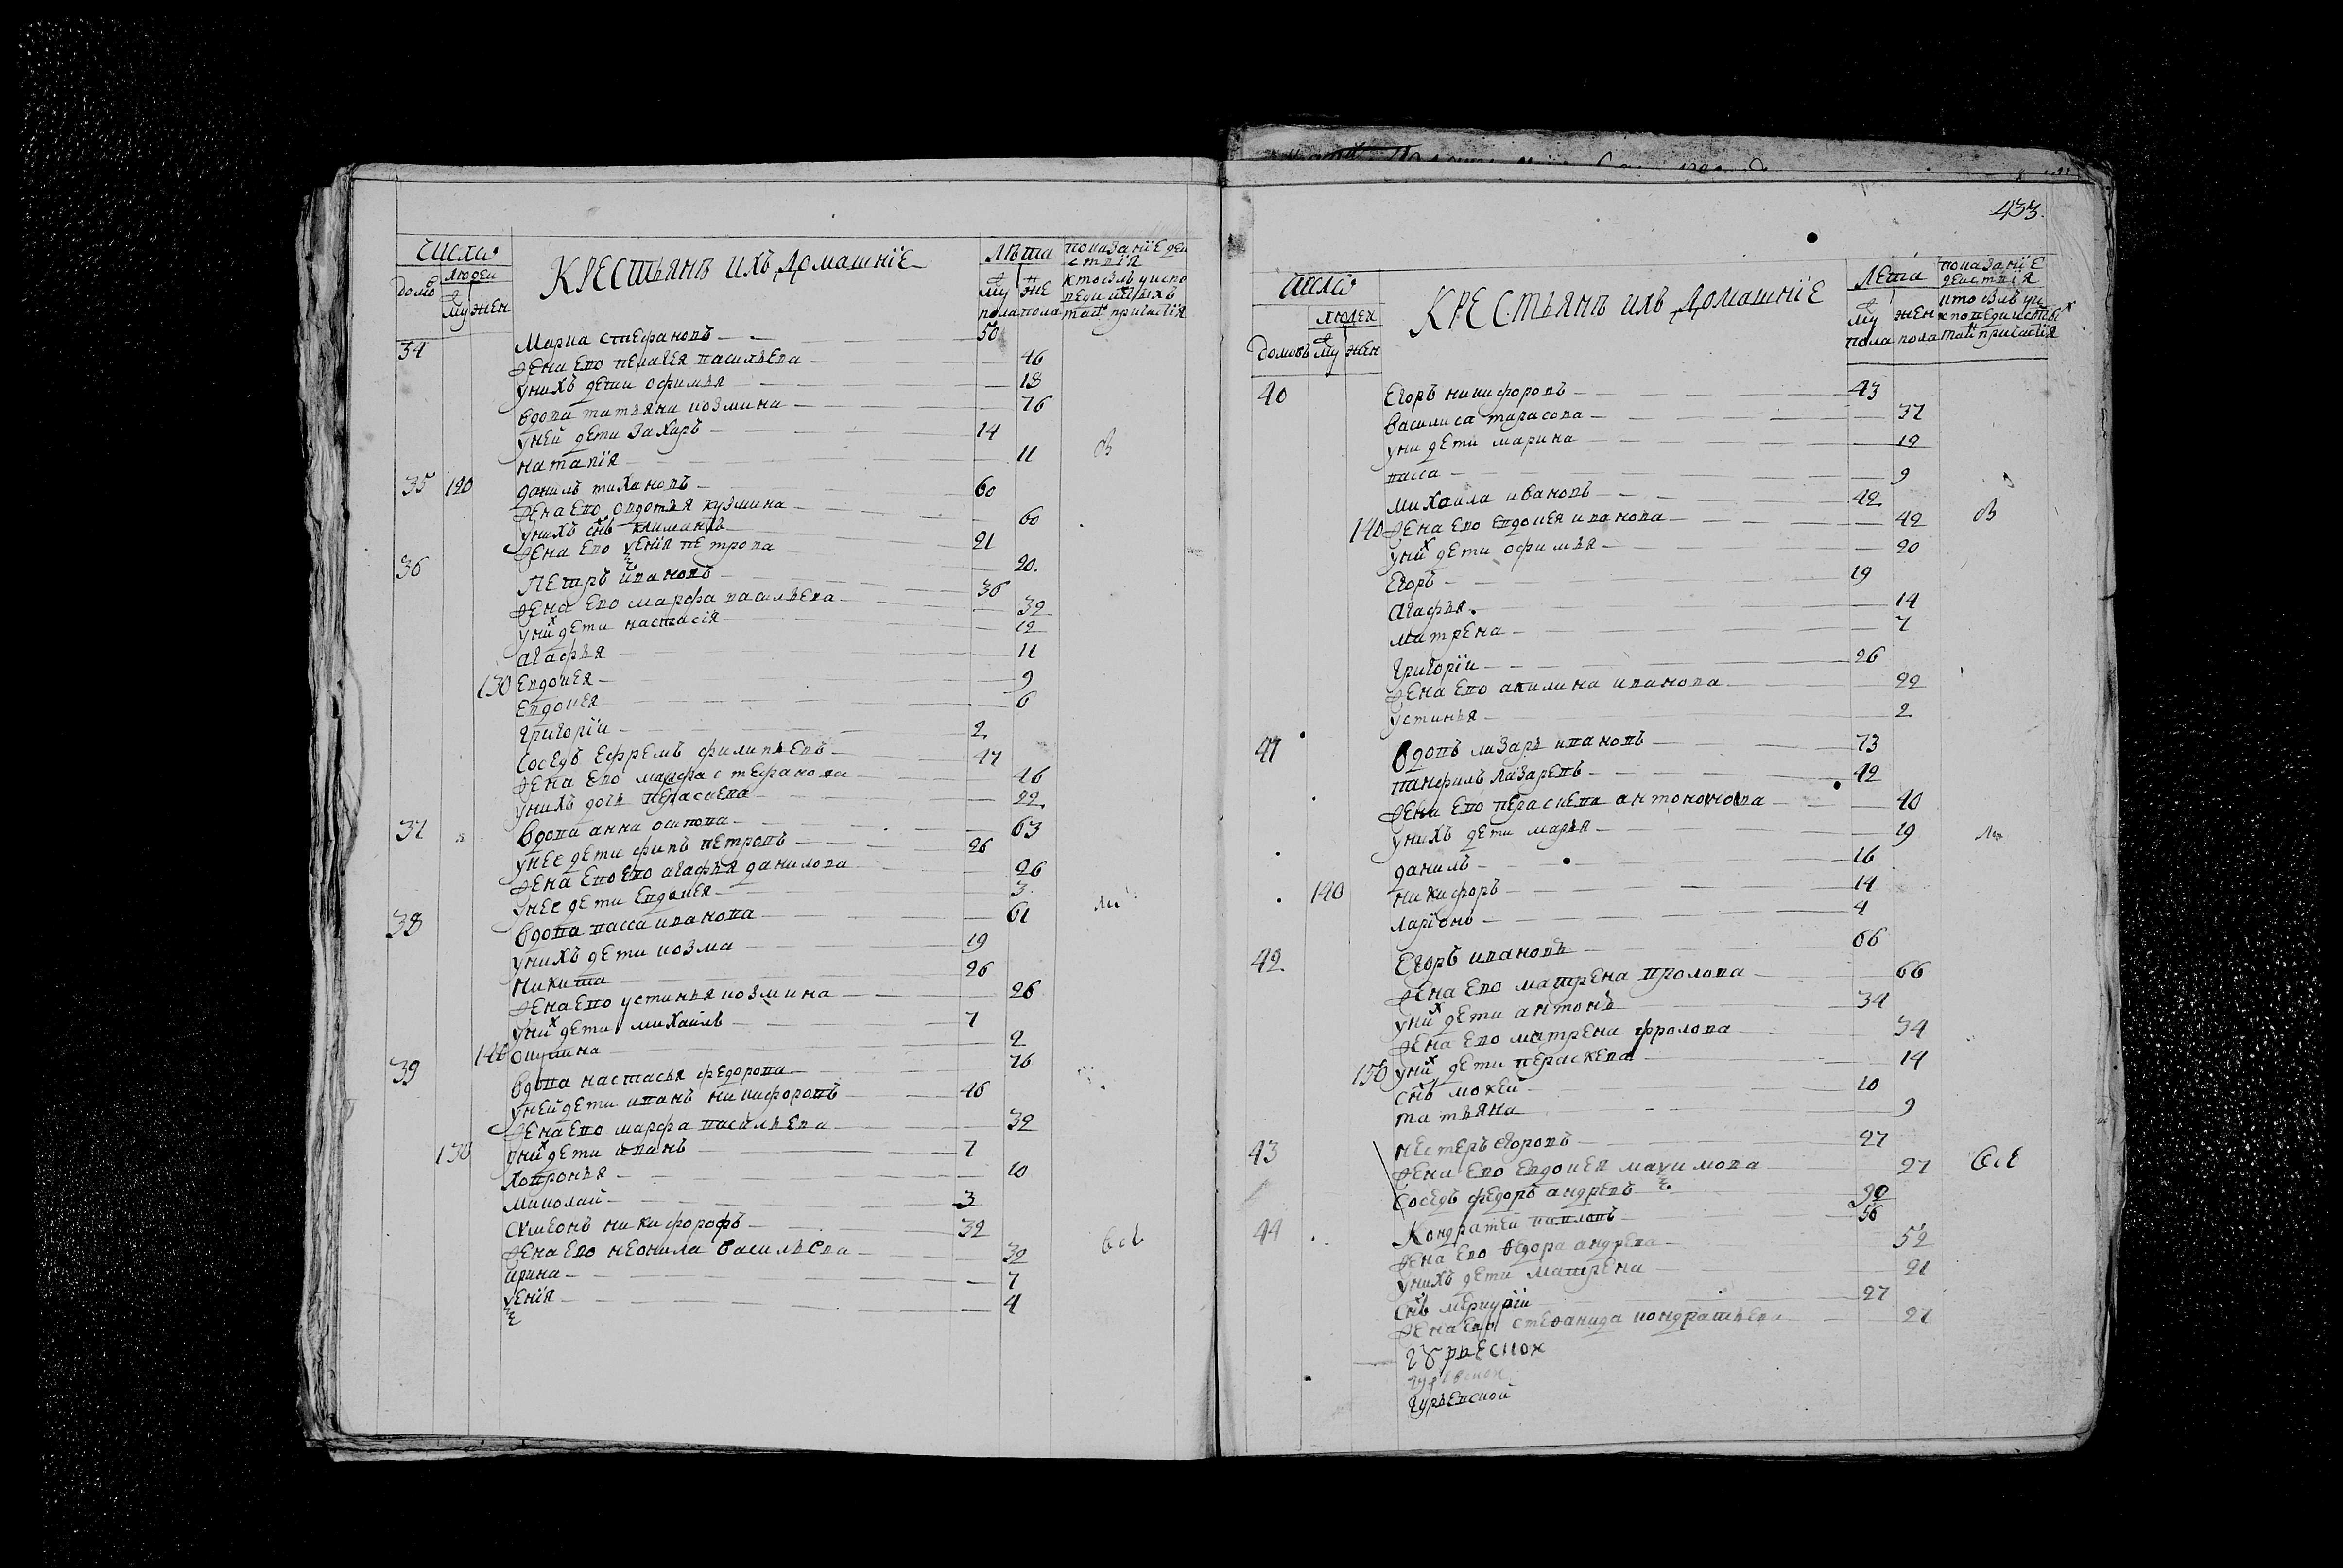 числа
Людеи
домо
му жен
КРЕСТЬЯНЪ ИХЪ ДОМАШНIЕ
Лѣта
му же
пола пола
показанiе деи
ствiя
кто былъ у испо
веди и с̃тыхъ
таи̃ъ причастiя
34 Мариа стефановъ 50
жена ево пелагея васильева 46
унихъ дети офимья 18
вдова татьяна козмина 76
уней дети Захаръ 14
наталiя 11
35 120 данилъ тихановъ 60
жена ево овдотья кузмина 60
унихъ сн̃ъ климантъ 21
жена ево ѯенiя петрова 20
36 Петръ ивановъ 36
жена ево марфа васильева 32
уних дети настасiя 12
агафья 11
130 Евдокея 9
Евдокея 6
Григорiи 2
Соседъ Ефремъ филипьевъ 47
жена ево марфа стефанова 46
унихъ дочь пераскева 22
37 вдова анна осипова 63
унее дети филъ петровъ 26
жена ево ево агафья данилова 26
унее дети Евдокея 3
38 вдова васса иванова 61
унихъ дети козма 19
Никита 26
жена ево устинья козмина 26
уних дети михаилъ 7
140 окулина 2
39 вдова настасья федорова 76
уней дети иванъ никифоровъ 46
жена ево марфа васильева 32
130 уних дети иванъ 7
Ховронья 10
Миколаи 3
Сѵмеонъ никифорофъ 32
жена ево неонила васильева 32
все
ирина 7
ѯенiя 4
433.
Числа
Людеи
домовъ му жен
КРЕСТЬЯНЪ ИХЪ ДОМАШНIЕ
Лета
му жен
пола пола
показанiе
деиствiя
кто былъ уи
споведи и с̃тых
таи̃ъ причастiя
40 Егоръ никифоровъ 43
Василиса тарасова 37
уни дети марина 12
васса 9
Михаила ивановъ 42
140 жена ево Евдокея иванова 42
уних дети офимья 20
Егоръ 19
Агафья 14
матрена 7
Григорiи 26
жена ево акилина иванова 22
устинья 2
41 вдовъ лазарь ивановъ 73
панфилъ Лазаревъ 42
жена ево пераскева антононова 40
унихъ дети марья 19
данилъ 16
140 никифоръ 14
ларiонъ 4
42 Егоръ ивановъ 66
жена ево матрена фролова 66
уних дети антонъ 34
жена ево матрена фролова 34
150 уних дети пераскева 14
сн̃ъ мокеи 10
татьяна 9
43 нестеръ егоровъ 27
жена ево Евдокея маѯимова 27
все
Соседъ федоръ андревъ 90
44 Кондратеи павловъ 56
жена ево ѳедора андрева 52
унихъ дети матрена 21
сн̃ъ меркурiи 27
жена ево стеѳанида кондратьева 27
гурьевскои